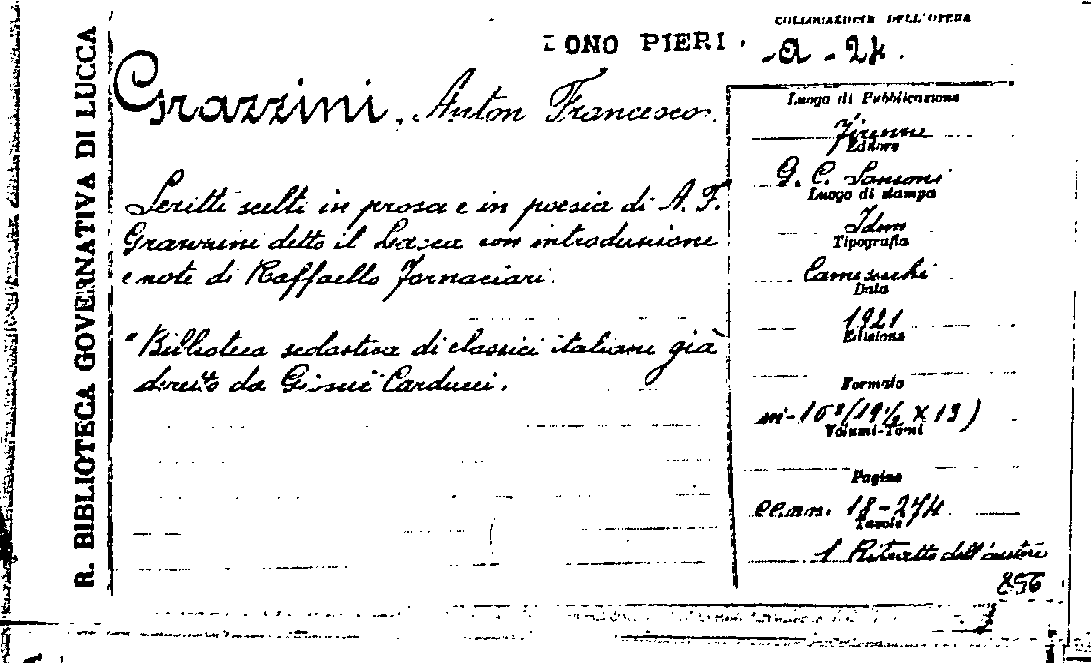 R. BIBLIOTECA GOVERNATIVA DI LUCCA
DONO PIERI.
COLLOCAZIONE DELL'OPERA
-A-24.
Grazzini, Anton Francesco.
Scritti scelti in prosa e in poesia di A. F.
Grazzini detto il Lasca con introduzione
e note di Raffaello Fornaciari.
"Biblioteca scolastica di classici italiani già
diretta da Giosuè Carducci.
Luogo di Pubblicazione
Firenze
Editore
G. C. Sansoni
Luogo di stampa
Idem
Tipografia
Carnesecchi
Data
1921
Edizione
Formato
in-16° (19½ X 13)
Volumi-Tomi
Pagine
18-274
Tavole
1 Ritratto dell'autore
856